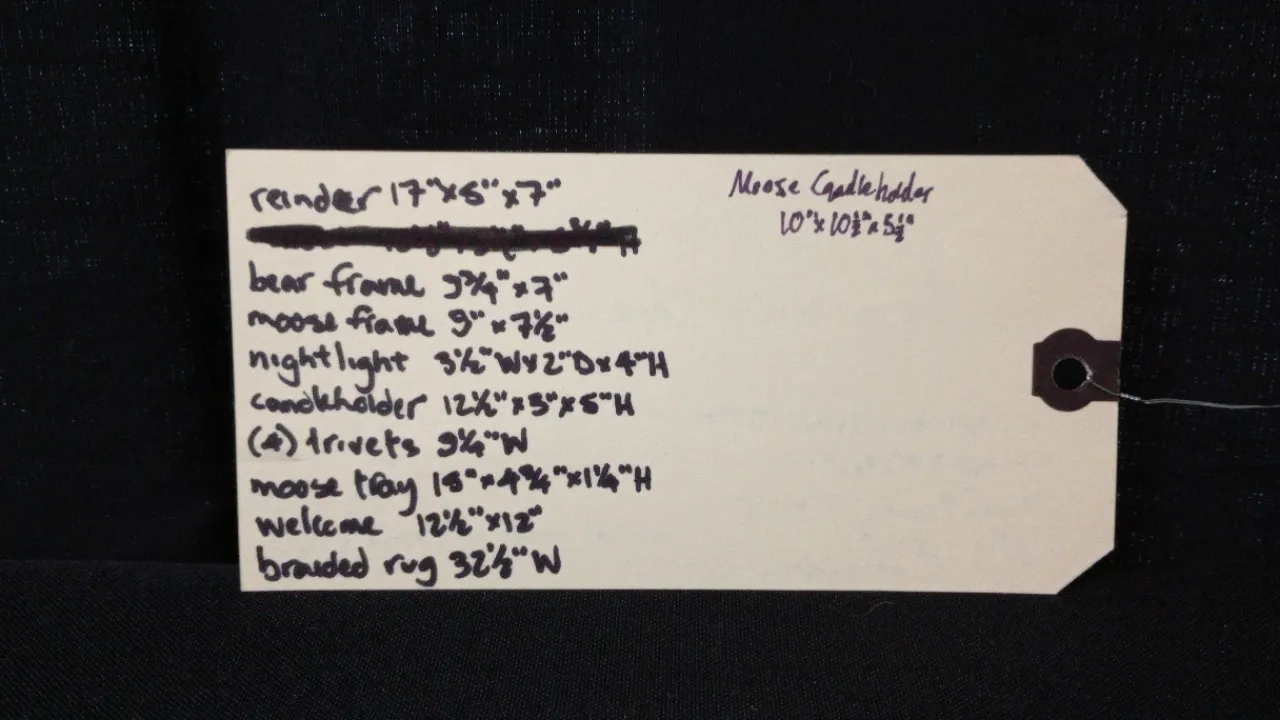 reindeer 17"x5"x7"
bear frame 9¾"x7"
moose frame 9"x7½"
nightlight 3½"Wx2"Dx4"H
candkholder 12½"x5"x5"H
(4) trivets 9¼"W
moose tray 15"x4¾"x1¼"H
welcome 12½"x12"
braided rug 32½"W
Moose Candleholder
10"x10½"x5½"